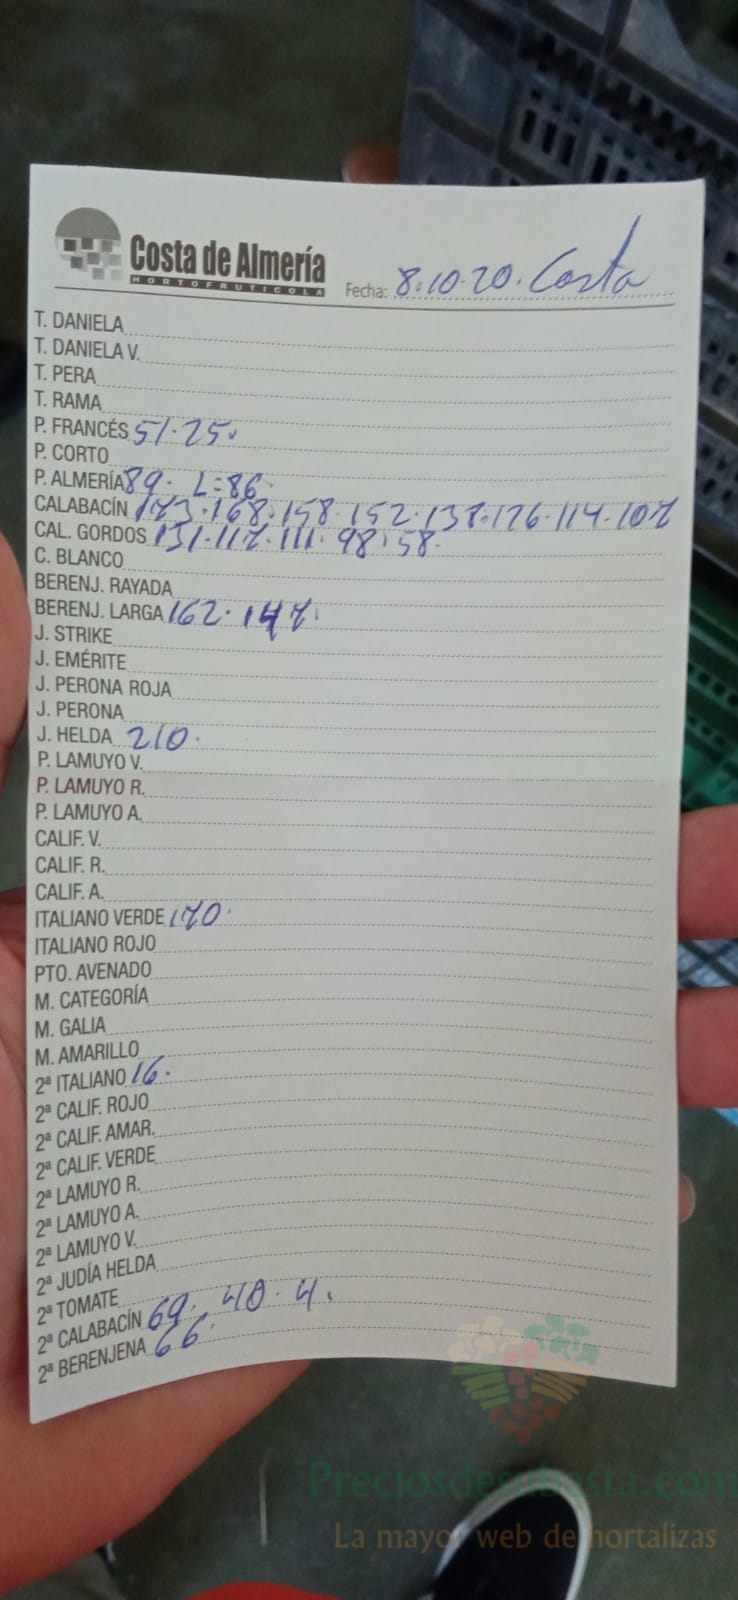 Costa de Almería
HORTOFRUTICOLA
Fecha: 8.10.20. Costa
T. DANIELA
T. DANIELA V.
T. PERA
T. RAMA
P. FRANCÉS 51.25.
P. CORTO
P. ALMERÍA 89. L=86
CALABACÍN 173.168.158.152.138.126.114.107
CAL. GORDOS 131.117.111.98.58.
C. BLANCO
BERENJ. RAYADA
BERENJ. LARGA 162.147.
J. STRIKE
J. EMÉRITE
J. PERONA ROJA
J. PERONA
J. HELDA 210.
P. LAMUYO V.
P. LAMUYO R.
P. LAMUYO A.
CALIF. V.
CALIF. R.
CALIF. A.
ITALIANO VERDE 170.
ITALIANO ROJO
PTO. AVENADO
M. CATEGORÍA
M. GALIA
M. AMARILLO
2ª ITALIANO 16.
2ª CALIF. ROJO
2ª CALIF. AMAR.
2ª CALIF. VERDE
2ª LAMUYO R.
2ª LAMUYO A.
2ª LAMUYO V.
2ª JUDÍA HELDA
2ª TOMATE
2ª CALABACÍN 69. 40. 4.
2ª BERENJENA 66.
Preciosdesubasta.com
La mayor web de hortalizas